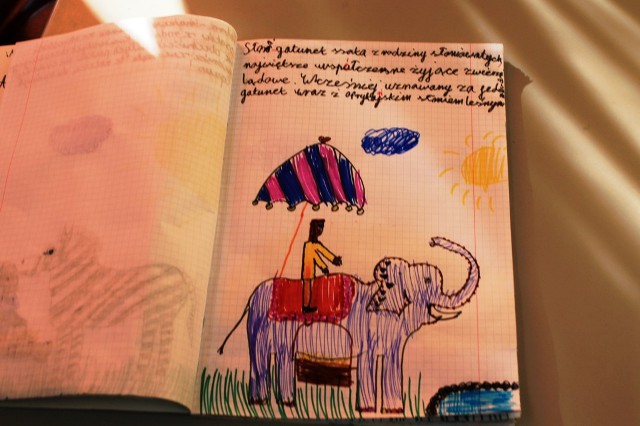 Słoń gatunek ssaka z rodziny słoniowatych,
największe współcześnie żyjące zwierzę
lądowe. Wcześniej uznawany za jeden
gatunek wraz z afrykańskim słoniem leśnym